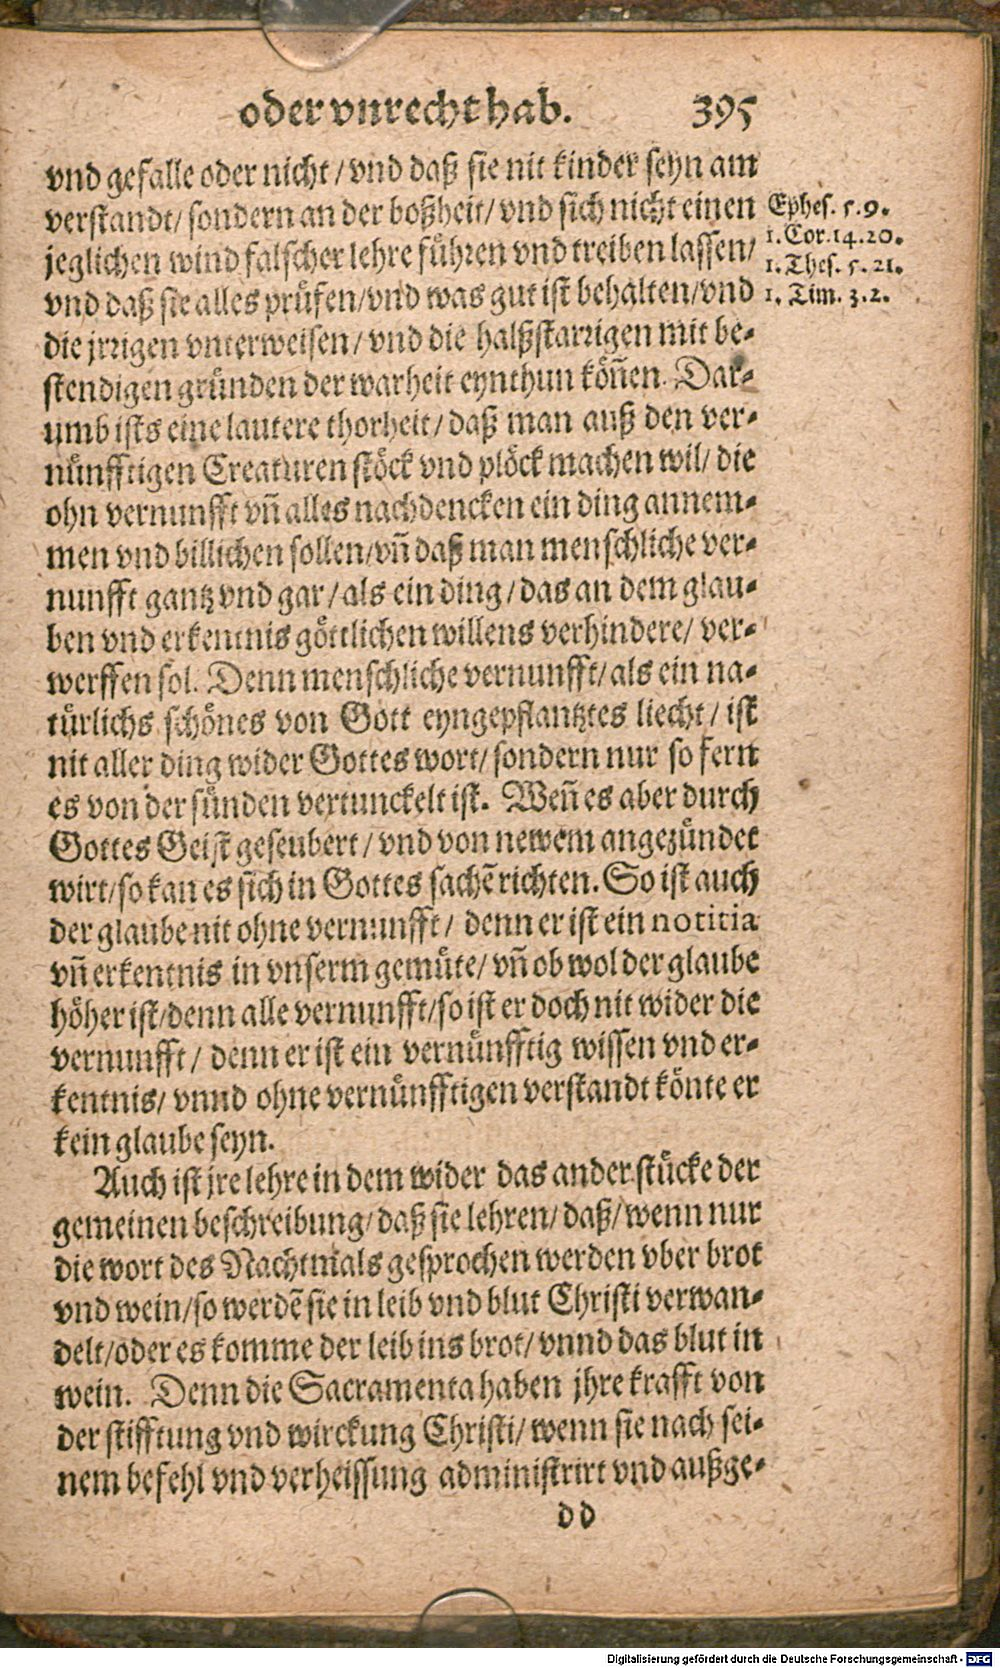 oder vnrecht hab. 395
vnd gefalle oder nicht / vnd daß sie nit kinder seyn am
verstandt / sondern an der boßheit / vnd sich nicht einen
jeglichen wind falscher lehre führen vnd treiben lassen /
vnd daß sie alles prüfen / vnd was gut ist behalten / vnd
die jrrigen vnterweisen / vnd die halßstarrigen mit be-
stendigen gründen der warheit eynthun köñen. Dar-
umb ists eine lautere thorheit / daß man auß den ver-
nünfftigen Creaturen stöck vnd plöck machen wil / die
ohn vernunfft vñ alles nachdencken ein ding annem-
men vnd billichen sollen / vñ daß man menschliche ver-
nunfft gantz vnd gar / als ein ding / das an dem glau-
ben vnd erkentnis göttlichen willens verhindere / ver-
werffen sol. Denn menschliche vernunfft / als ein na-
türlichs schönes von Gott eyngepflantztes liecht / ist
nit aller ding wider Gottes wort / sondern nur so fern
es von der sünden vertunckelt ist. Weñ es aber durch
Gottes Geist geseubert / vnd von newem angezündet
wirt / so kan es sich in Gottes sachẽ richten. So ist auch
der glaube nit ohne vernunfft / denn er ist ein notitia
vñ erkentnis in vnserm gemüte / vñ ob wol der glaube
höher ist / denn alle vernunfft / so ist er doch nit wider die
vernunfft / denn er ist ein vernünfftig wissen vnd er-
kentnis / vnnd ohne vernünfftigen verstandt könte er
kein glaube seyn.
Auch ist jre lehre in dem wider das ander stücke der
gemeinen beschreibung / daß sie lehren / daß / wenn nur
die wort des Nachtmals gesprochen werden vber brot
vnd wein / so werdẽ sie in leib vnd blut Christi verwan-
delt / oder es komme der leib ins brot / vnnd das blut in
wein. Denn die Sacramenta haben jhre krafft von
der stifftung vnd wirckung Christi / wenn sie nach sei-
nem befehl vnd verheissung administrirt vnd außge-
dd
Ephes. 5. 9.
1. Cor. 14. 20.
1. Thes. 5. 21.
1. Tim. 3. 2.
Digitalisierung gefördert durch die Deutsche Forschungsgemeinschaft - DFG